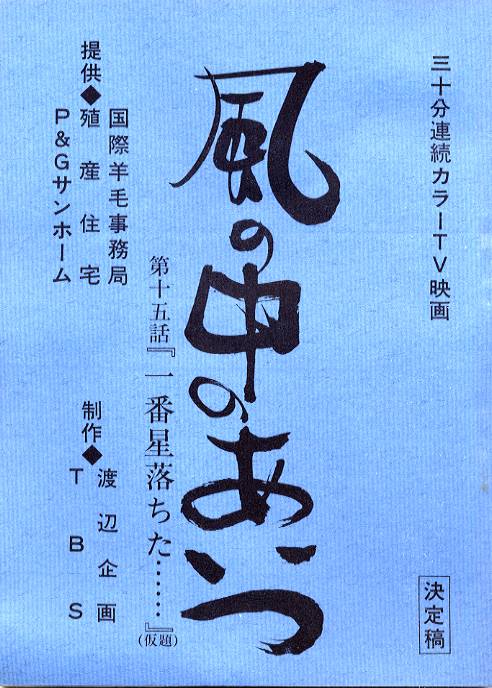 三十分連続カラーTV映画
決定稿
風の中のあいつ
第十五話『一番星落ちた……』
(仮題)
提供◆殖産住宅
国際羊毛事務局
P&Gサンホーム
制作◆渡辺企画
TBS